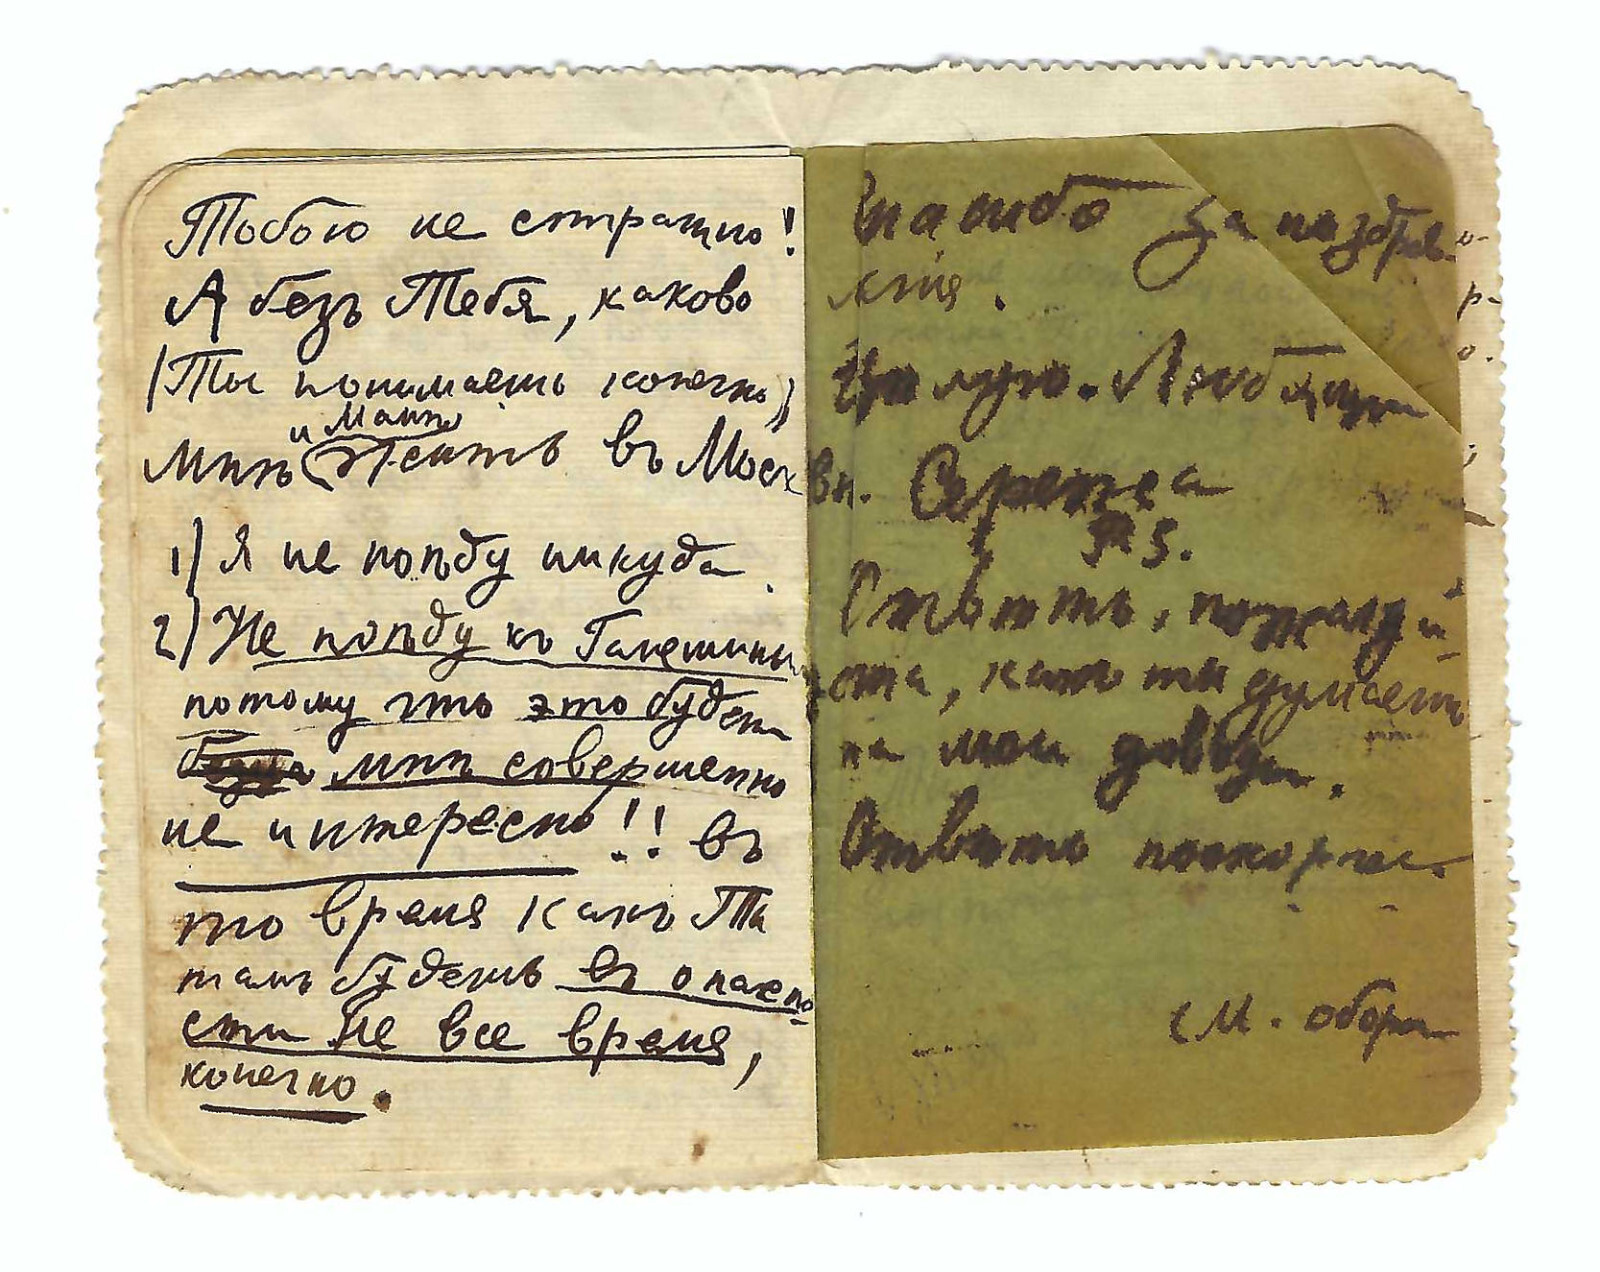 Тобою не страшно!
А безъ Тебя, каково
(Ты понимаешь конечно)
и Мамѣ
мнѣ жить въ Моск
1) Я не поѣду никуда.
2) Не поѣду къ
потому что это будетъ
мнѣ совершенно
не интересно!! въ
то время какъ Ты
тамъ будешь въ опасно-
сти не все время,
конечно.
Спасибо за поздрав-
ленiе.
Цѣлую. Любящiй
вѣ. Сережа
P.S.
Отвѣть, пожалуй-
ста, какъ ты думаешь
на мои доводы.
Отвѣть поскорѣе.
см. оборотъ